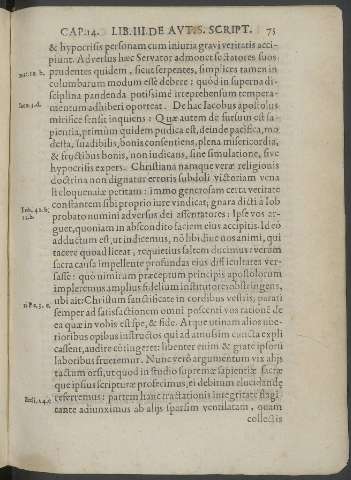 CAP. 14. LIB. III. DE AVT. S. SCRIPT. 75
& hypocrisis personam cum iniuria gravi veritatis acci-
piunt. Adversus hæc Servator admonet sectatores suos
mat. 10. b. prudentes quidem, sicut serpentes, simplices tamen in
columbarum modum esse debere: quòd in superna di-
sciplina pandenda potissimè irreprehensum tempera-
Iaco. 3. d. mentum adhiberi oporteat. De hac Iacobus apostolus
mirifice sensit inquiens: Quæ autem de sursum est sa-
pientia, primùm quidem pudica est, deinde pacifica, mo
desta, suadibilis, bonis consentiens, plena misericordia,
& fructibus bonis, non iudicans, sine simulatione, sive
hypocrisis expers. Christiana namque veræ religionis
doctrina non dignatur erroris subdoli victoriam vena
li eloquentiæ petitam: immo generosam certa veritate
constantem sibi proprio iure vindicat; gnara dicti à Iob
probato numini adversus dei assentatores: Ipse vos ar-
guet, quoniam in abscondito faciem eius accipitis. Id eo
adductum est, ut indicemus, nō libi duc nos animi, qui
tacere quoad liceat, requietius saltem ducimus: verùm
sacra causa impellente profundas eius difficultates ver-
sasse: quò nimirum præceptum principis apostolorum
impleremus amplius fidelium institutores obstringens,
1. Pe. 3. c. ubi ait: Christum sanctificate in cordibus vestris, parati
semper ad satisfactionem omni poscenti vos rationē de
ea quæ in vobis est spe, & fide. Atque utinam alios ube-
rioribus opibus instructos qui ad amussim cuncta expli
cassent, audire cōtingeret: libenter enim & grate ipsorū
laboribus frueremur. Nunc verò argumentum vix abijs
tactum orsi, ut quod in studio supremæ sapientiæ sacræ
que ipsius scripturæ profecimus, ei debitum elucidandę
referremus: partem hanc tractationis integritate flagi
tante adiunximus ab alijs sparsim ventilatam, quam
collectis